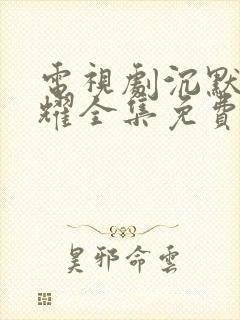 電視劇沉默
耀全集免費
昊邪命雲